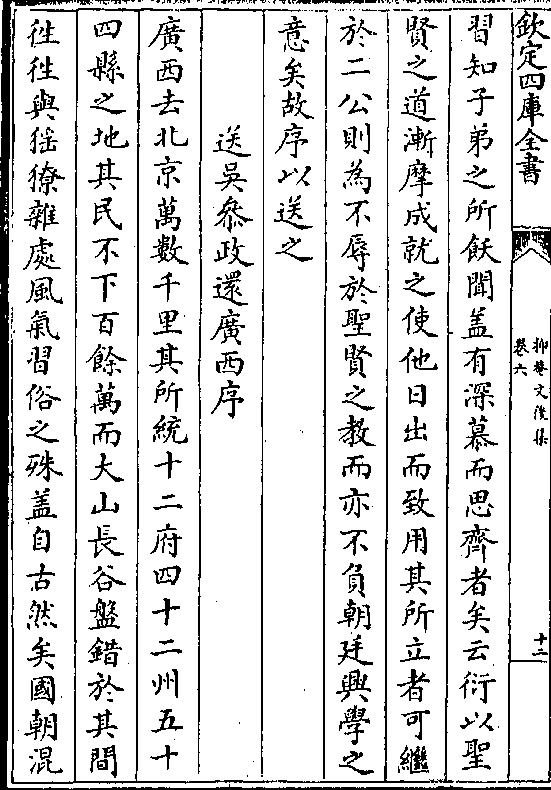 欽定四庫全書
抑菴文後集
卷六
十二
習知子弟之所飫聞盖有深慕而思齊者矣云衍以聖
賢之道漸摩成就之使他日出而致用其所立者可繼
於二公則為不辱於聖賢之教而亦不負朝廷興學之
意矣故序以送之
送吳叅政還廣西序
廣西去北京萬數千里其所統十二府四十二州五十
四縣之地其民不下百餘萬而大山長谷盤錯於其間
徃徃與猺獠雜處風氣習俗之殊盖自古然矣國朝混